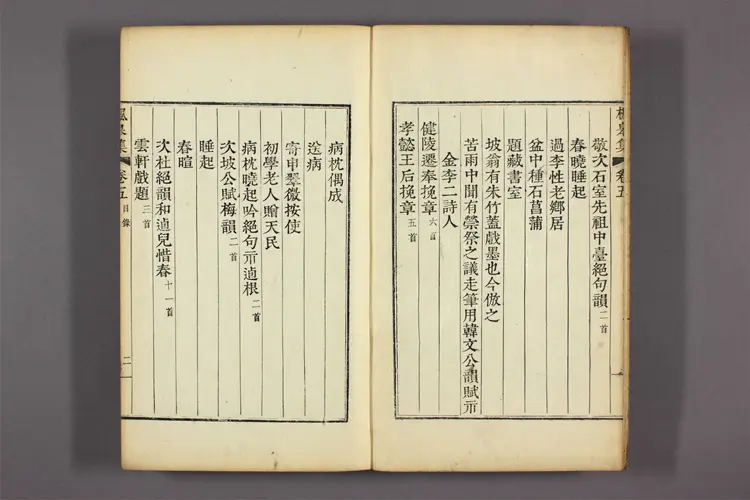 楓皐集 卷五
敬次石室先祖中臺絕句韻二首
春曉睡起
過李性老鄉居
盆中種石菖蒲
題藏書室
坡翁有朱竹蓋戲墨也今倣之
苦雨中聞有禜祭之議走筆用韓文公韻賦示
金李二詩人
健陵遷奉挽章六首
孝懿王后挽章五首
病枕偶成
送病
寄申翠微按使
初學老人贈天民
病枕曉起吟絕句示逌根二首
次坡公賦梅韻二首
睡起
春暄
次杜絕韻和逌兒惜春十一首
雲軒戲題三首
楓皐集 卷五 目錄 二